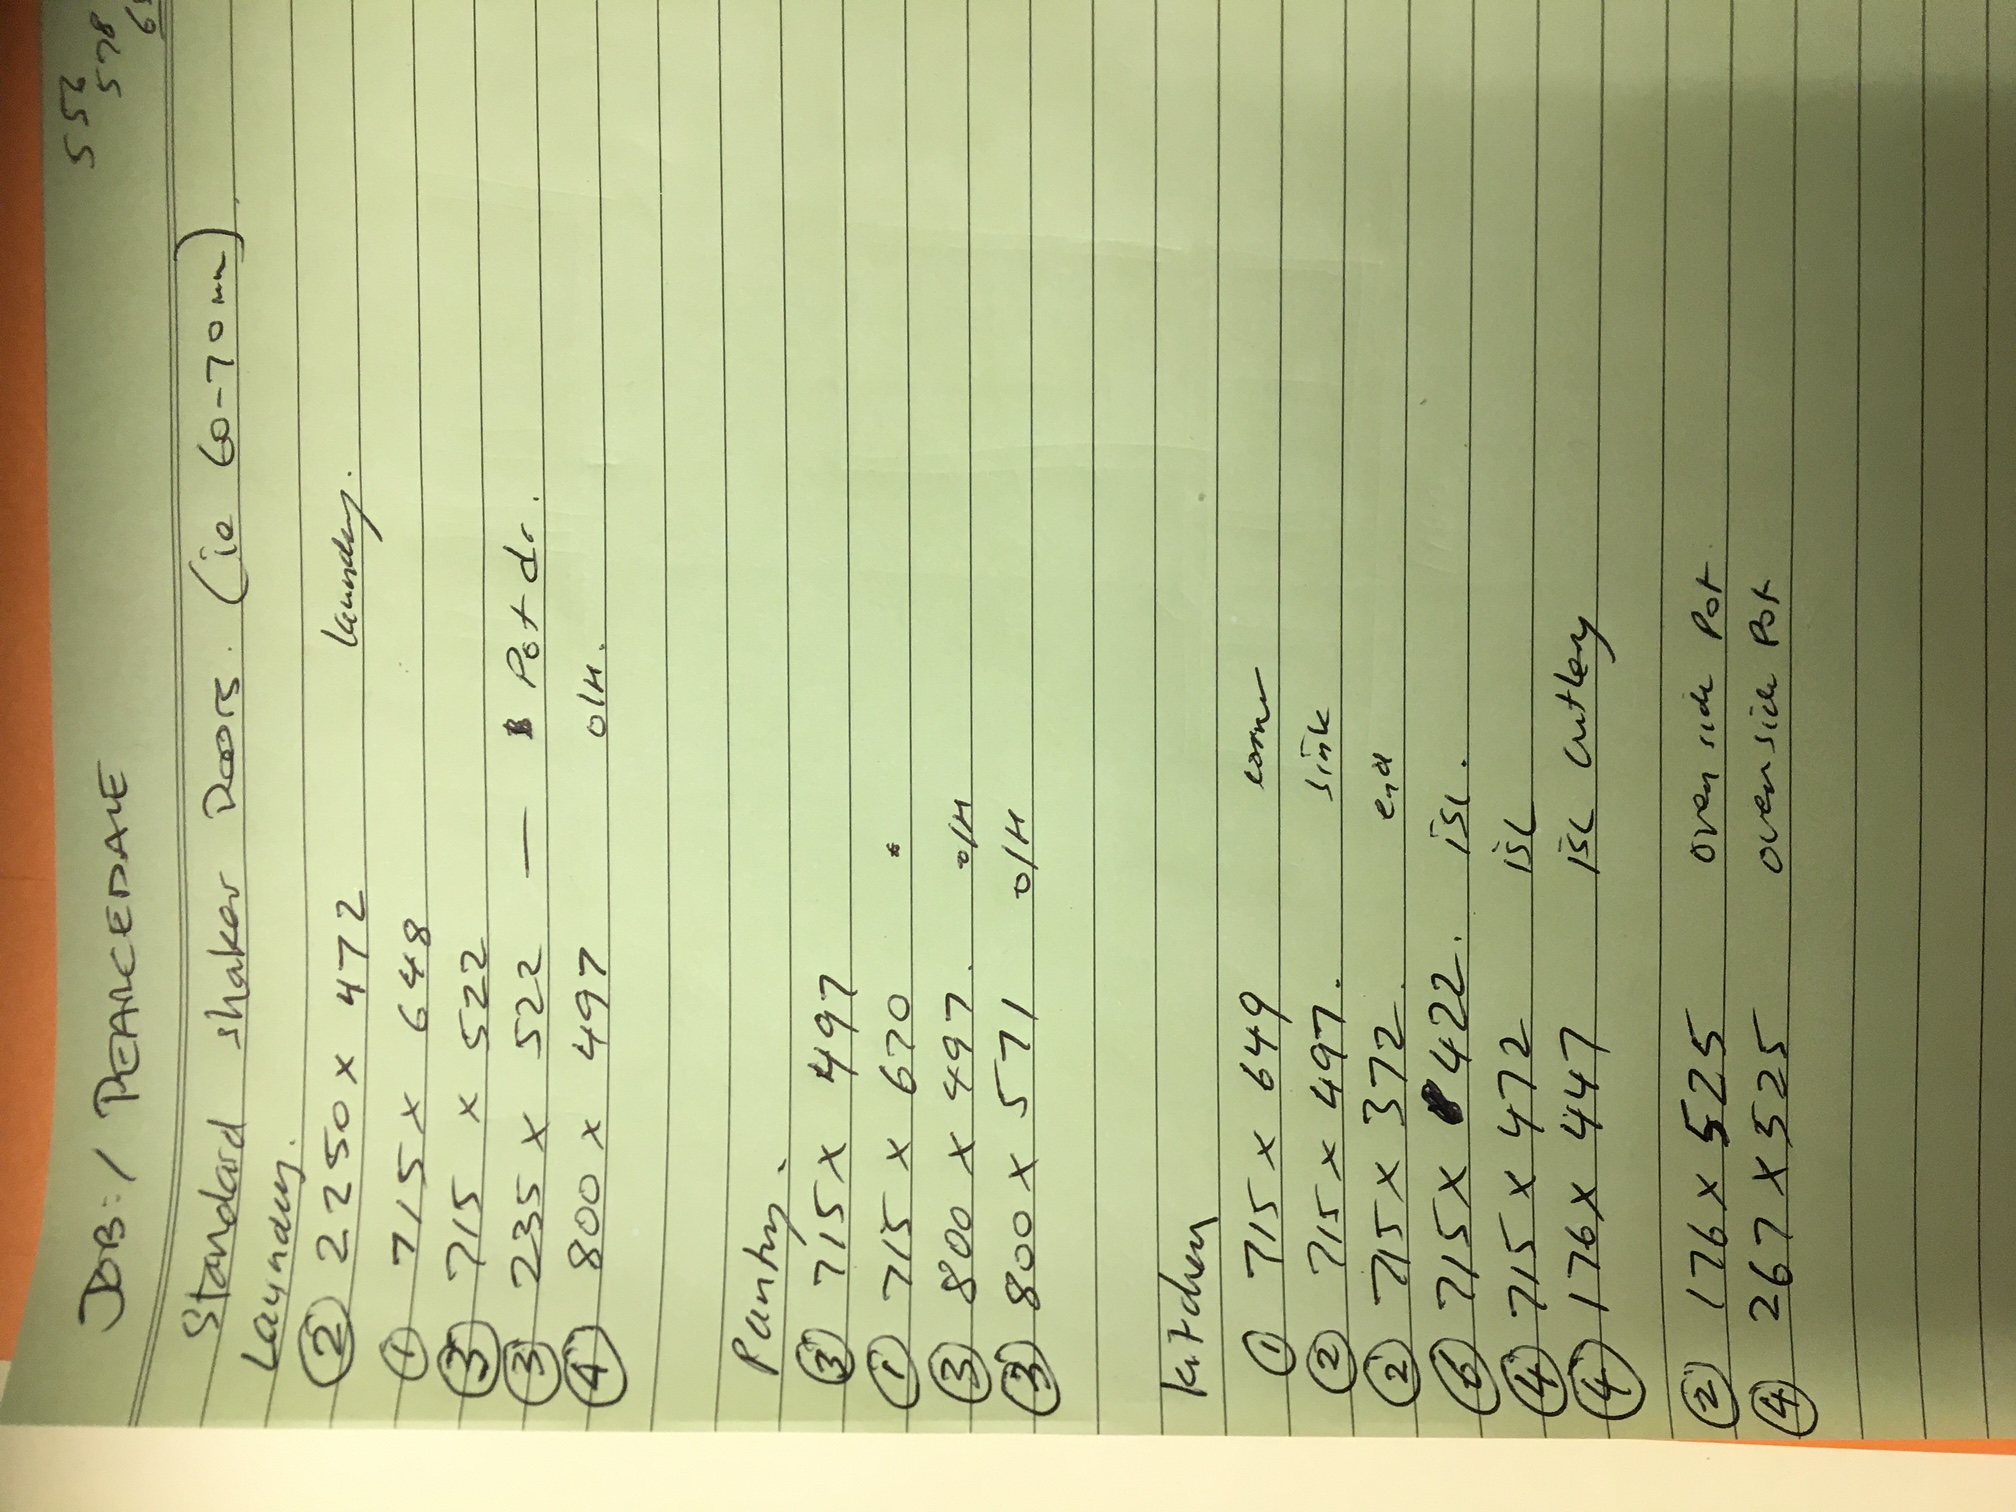 556
578
JOB:/ PEARCEDALE
Standard shaker Doors. (ie 60-70mm).
Laundry.
② 2250 x 472 laundry.
① 715 x 648
③ 715 x 522
③ 235 x 522 — Pot dr.
④ 800 x 497 O/H.
Pantry.
③ 715 x 497
① 715 x 670
③ 800 x 497. O/H
③ 800 x 571 O/H
Kitchen
① 715 x 649 corner
② 715 x 497. sink
② 715 x 372. end
⑥ 715 x 422. isl.
④ 715 x 472 isl
④ 176 x 447 isl cutlery
② 176 x 525 oven side Pot.
④ 267 x 525 oven side Pot